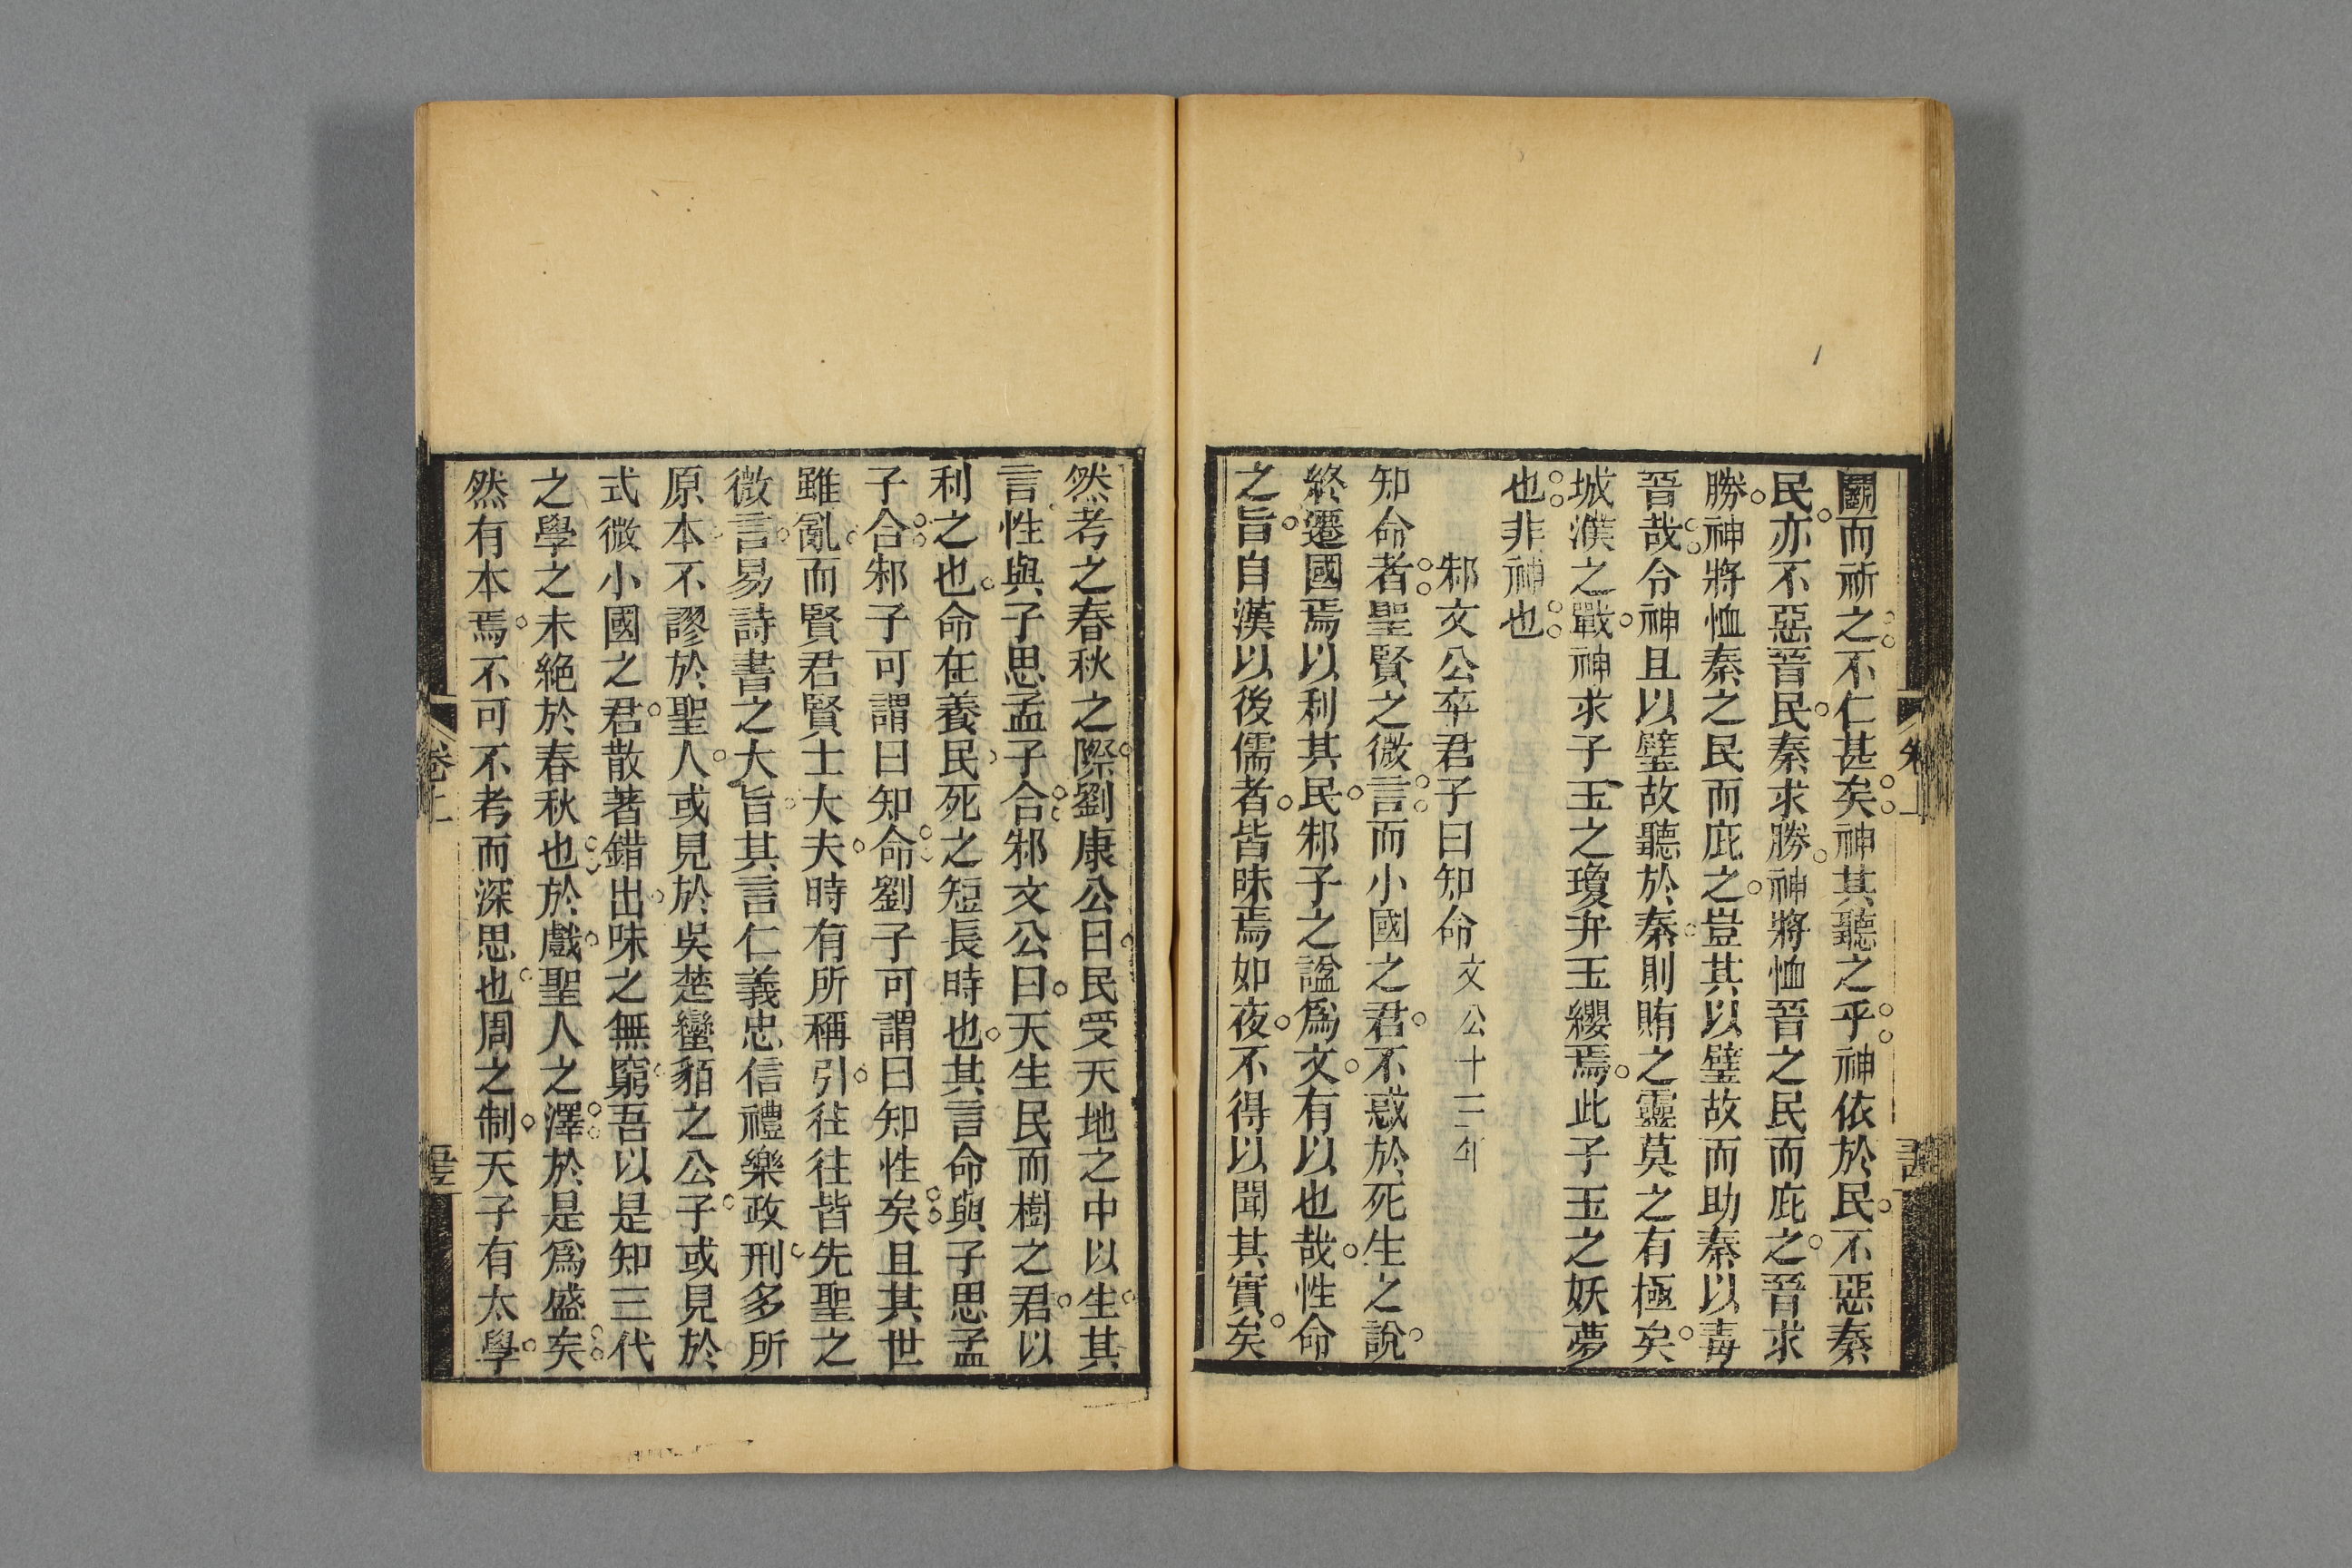 鬭而祈之不仁甚矣神其聽之乎神依於民不惡秦
民亦不惡晉民秦求勝神將恤晉之民而庇之晉求
勝神將恤秦之民而庇之豈其以璧故而助秦以毒
晉哉令神且以璧故聽於秦則賄之靈莫之有極矣
城濮之戰神求子玉之瓊弁玉纓焉此子玉之妖夢
也非神也
邾文公卒君子曰知命 文公十三年
知命者聖賢之微言而小國之君不惑於死生之說
終遷國焉以利其民邾子之諡爲文有以也哉性命
之旨自漢以後儒者皆昧焉如夜不得以聞其實矣
然考之春秋之際劉康公曰民受天地之中以生其
言性與子思孟子合邾文公曰天生民而樹之君以
利之也命在養民死之短長時也其言命與子思孟
子合邾子可謂曰知命劉子可謂曰知性矣且其世
雖亂而賢君賢士大夫時有所稱引往往皆先聖之
微言易詩書之大旨其言仁義忠信禮樂政刑多所
原本不謬於聖人或見於吳楚蠻貊之公子或見於
式微小國之君散著錯出味之無窮吾以是知三代
之學之未絕於春秋也於戲聖人之澤於是爲盛矣
然有本焉不可不考而深思也周之制天子有太學
卷上